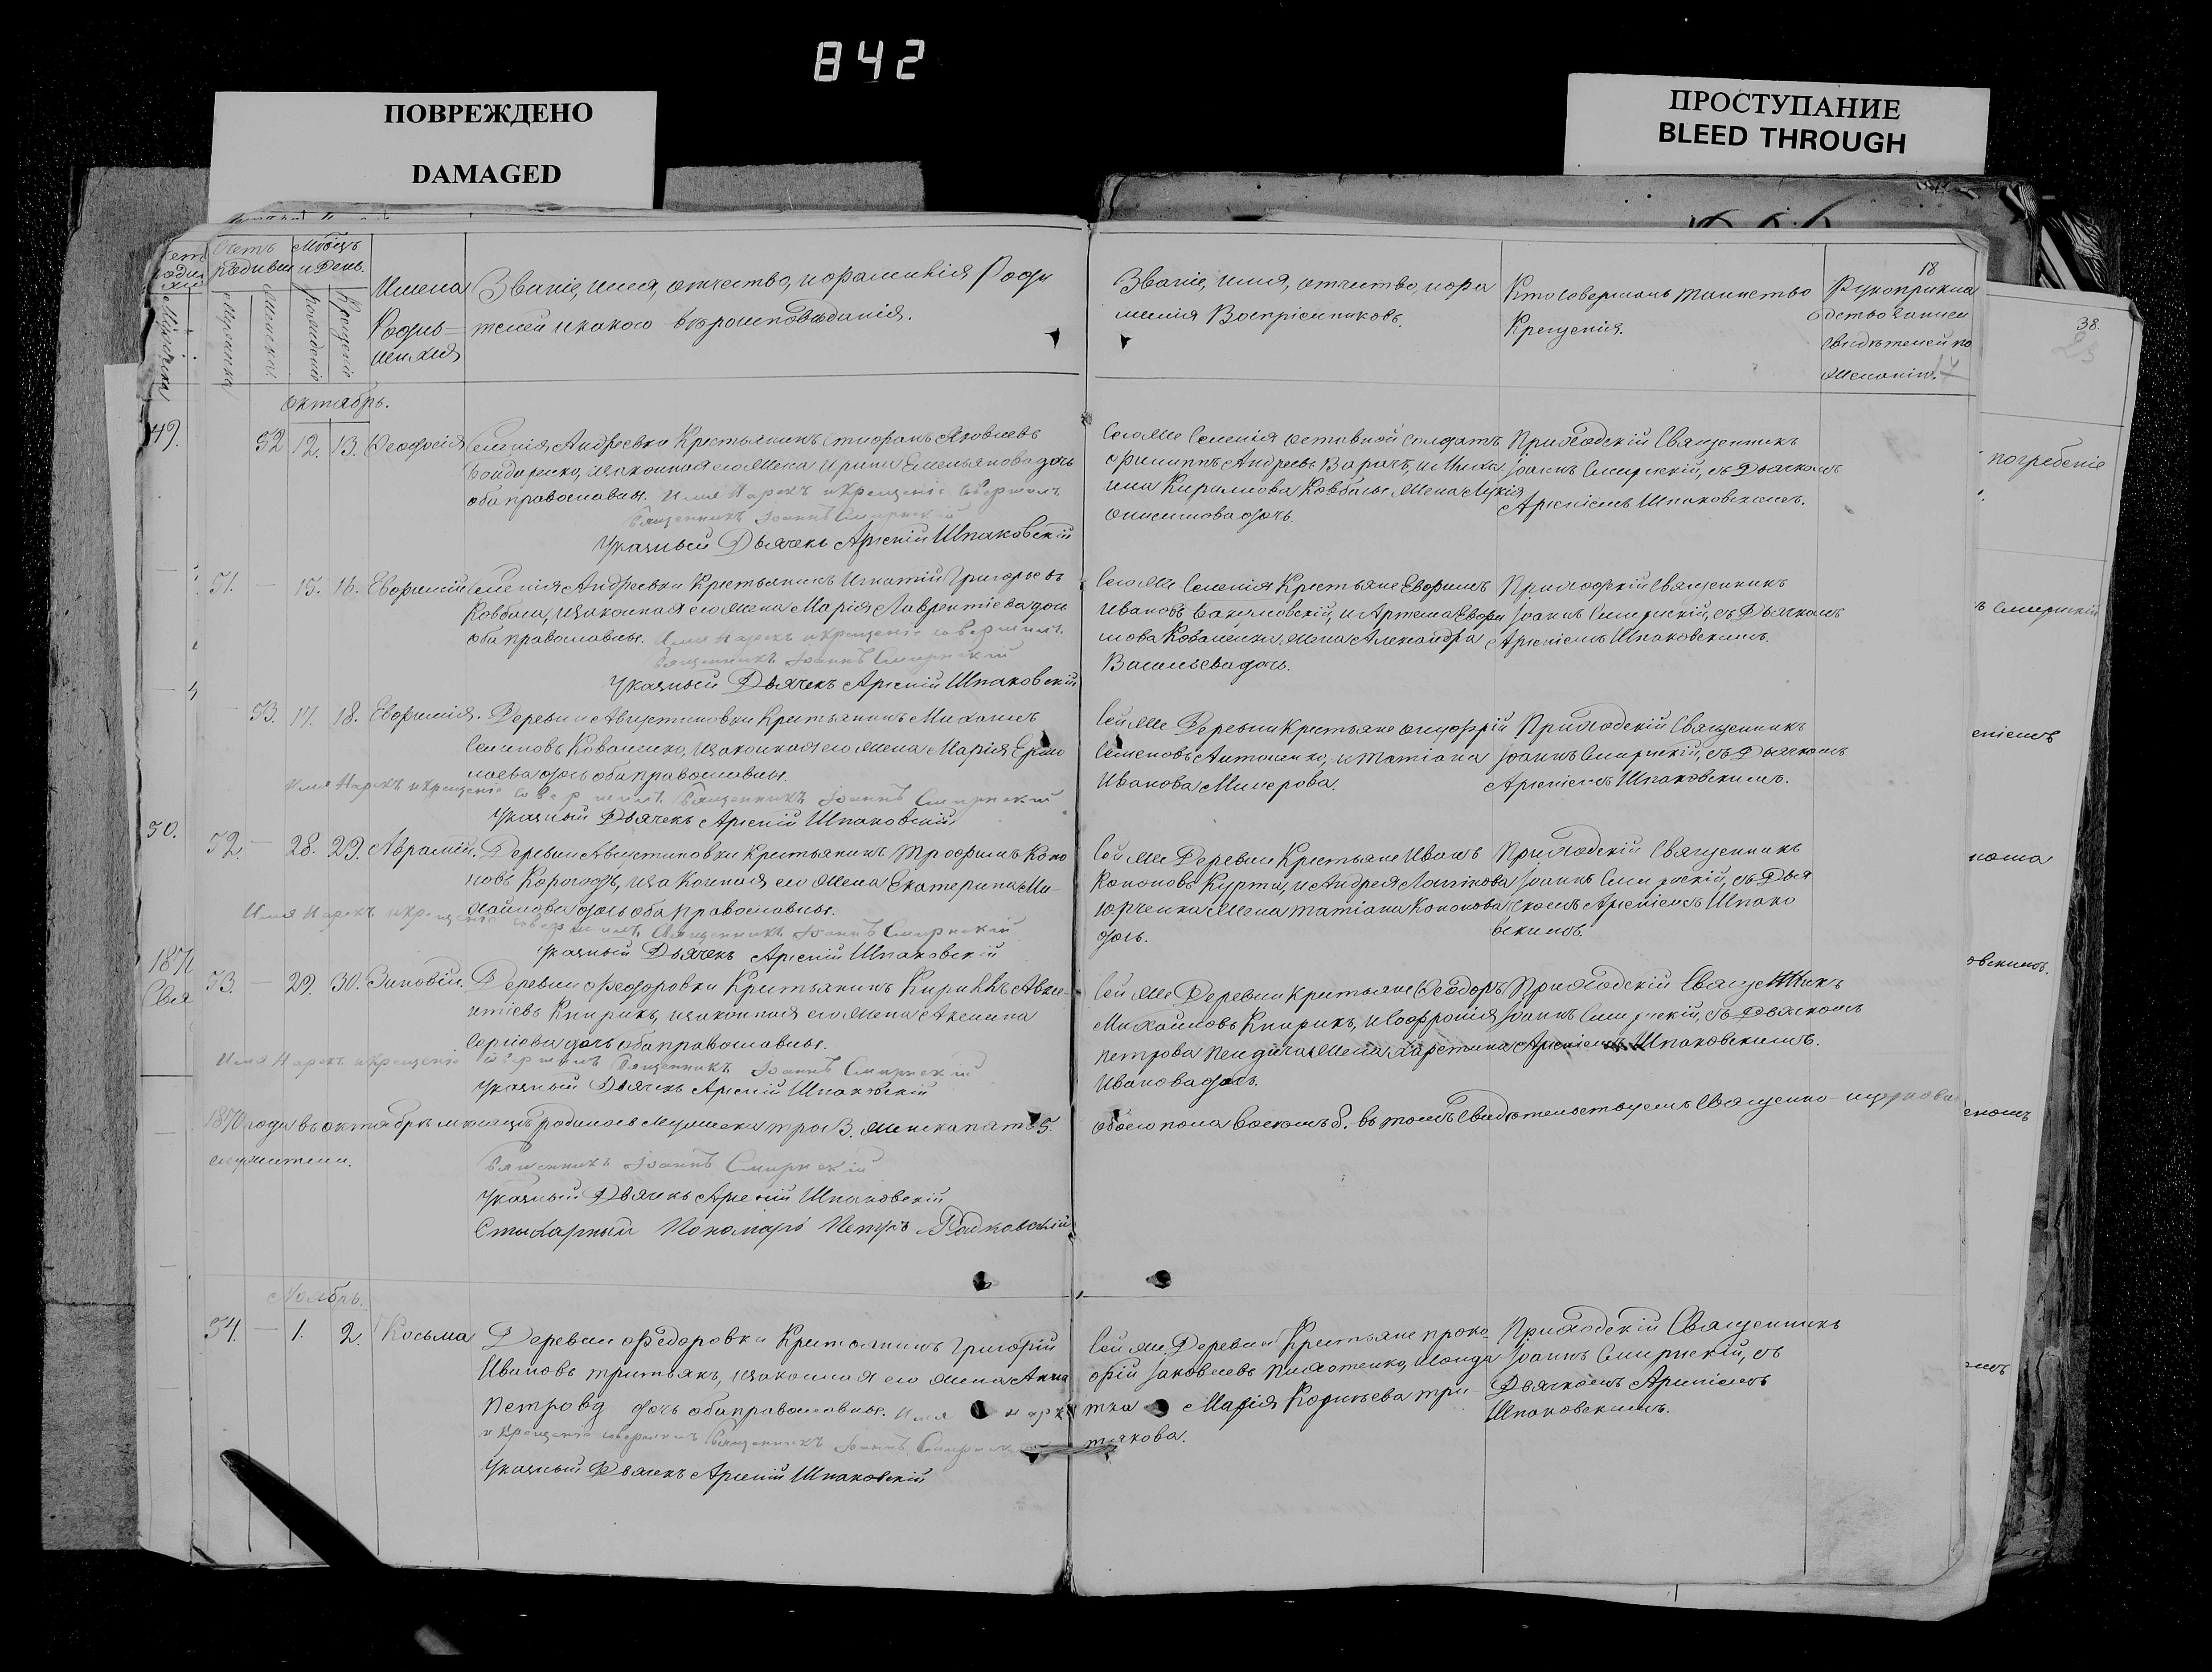 842
ПОВРЕЖДЕНО
DAMAGED
ПРОСТУПАНИЕ
BLEED THROUGH
Счетъ родивши
Мѣсяцъ и День.
Мужеска
Женска
рожденія
Крещенія
Имена Родив=шихся
Званіе, имя, отчество, и фамилія Роди
телей и какого вѣроисповѣданія.
Званіе, имя, отчество, и фа
милія Воспріемниковъ.
Кто совершалъ таинство
Крещенія.
18
Рукоприкла
дство записи
свидѣтелей по
желанію.
38.
Октябрь.
49.
52 12. 13. Феодосія
Селенія Андреевки Крестьянинъ Стефанъ Яковлевъ
Бондаренко, и законная его жена Ирина Емельянова дочь
оба православны. Имя Нарекъ и крещеніе совершилъ
Священникъ Іоаннъ Смирнскій
Указный Дьячекъ Арсеній Шпаковскій
Того же Селенія отставной солдатъ
Филиппъ Андреевъ
Кирилова Ковбасы жена
Онисимова дочь.
Приходскій Священникъ
Іоаннъ Смирнскій, съ Дьячкомъ
Арсеніемъ Шпаковскимъ.
погребеніе
51. — 15. 16. Евфимій
Селенія Андреевки Крестьянинъ Игнатій Григорьевъ
Ковбаса, и законная его жена Марія Лаврентіева дочь
оба православны. Имя Нарекъ и крещеніе совершилъ
Священникъ Іоаннъ Смирнскій
Указный Дьячекъ Арсеній Шпаковскій
Того же Селенія Крестьяне Евфимъ
Ивановъ и Артема Евфи
мова Коваленка жена Александра
Васильева дочь.
Приходскій Священникъ
Іоаннъ Смирнскій, съ Дьячкомъ
Арсеніемъ Шпаковскимъ.
ъ Смирнскій
53. 17. 18. Евфимія.
Деревни Августиновки Крестьянинъ Михаилъ
Семеновъ Коваленко, и законная его жена Марія Ермо
лаева дочь оба православны.
Имя Нарекъ и крещеніе совершилъ Священникъ Іоаннъ Смирнскій
Указный Дьячекъ Арсеній Шпаковскій
Сей же Деревни Крестьяне Онуфрій
Семеновъ Антоненко, и Татіана
Иванова
Приходскій Священникъ
Іоаннъ Смирнскій, съ Дьячкомъ
Арсеніемъ Шпаковскимъ.
еніемъ
50.
52. — 28. 29. Аврамій.
Деревни Августиновки Крестьянинъ Трофимъ Коно
новъ и законная его жена Екатерина Ми-
хайлова дочь оба православны.
Имя Нарекъ и крещеніе совершилъ Священникъ Іоаннъ Смирнскій
Указный Дьячекъ Арсеній Шпаковскій
Сей же Деревни Крестьяне Иванъ
Кононовъ и Андрея
Юрченка жена Татіана Кононова
дочь.
Приходскій Священникъ
Іоаннъ Смирнскій, съ Дья
чкомъ Арсеніемъ Шпако
вскимъ.
1871
Свя
53. — 29. 30. Зиновій.
Деревни Феодоровки Крестьянинъ Кириллъ Авксе-
нтіевъ Книрикъ, и законная его жена Аксенія
Сергіева дочь оба православны.
Имя Нарекъ и крещеніе совершилъ Священникъ Іоаннъ Смирнскій
Указный Дьячекъ Арсеній Шпаковскій
Сей же Деревни Крестьяне Феодоръ
Михайловъ Книрикъ, и Софронія
Петрова жена
Иванова дочь.
Приходскій Священникъ
Іоаннъ Смирнскій, съ Дьячкомъ
Арсеніемъ Шпаковскимъ.
овскимъ.
1870 года въ октябрѣ мѣсяцѣ родилось Мужеска три 3. женска пять 5.
обоего пола восемь 8. въ томъ свидѣтельствуемъ Священно-церковно
служители.
Священникъ Іоаннъ Смирнскій
Указный Дьячекъ Арсеній Шпаковскій
Стихарный Пономарь Петръ
Ноябрь.
54. — 1. 2. Косьма
Деревни Федоровки Крестьянинъ Григорій
Ивановъ Третьякъ, и законная его жена Анна
Петрова дочь оба православны. Имя Нарекъ
и крещеніе совершилъ Священникъ Іоаннъ Смирнскій
Указный Дьячекъ Арсеній Шпаковскій
Сей же Деревни Крестьяне Проко
фій Іаковлевъ
тка Марія три
тякова.
Приходскій Священникъ
Іоаннъ Смирнскій, съ
Дьячкомъ Арсеніемъ
Шпаковскимъ.